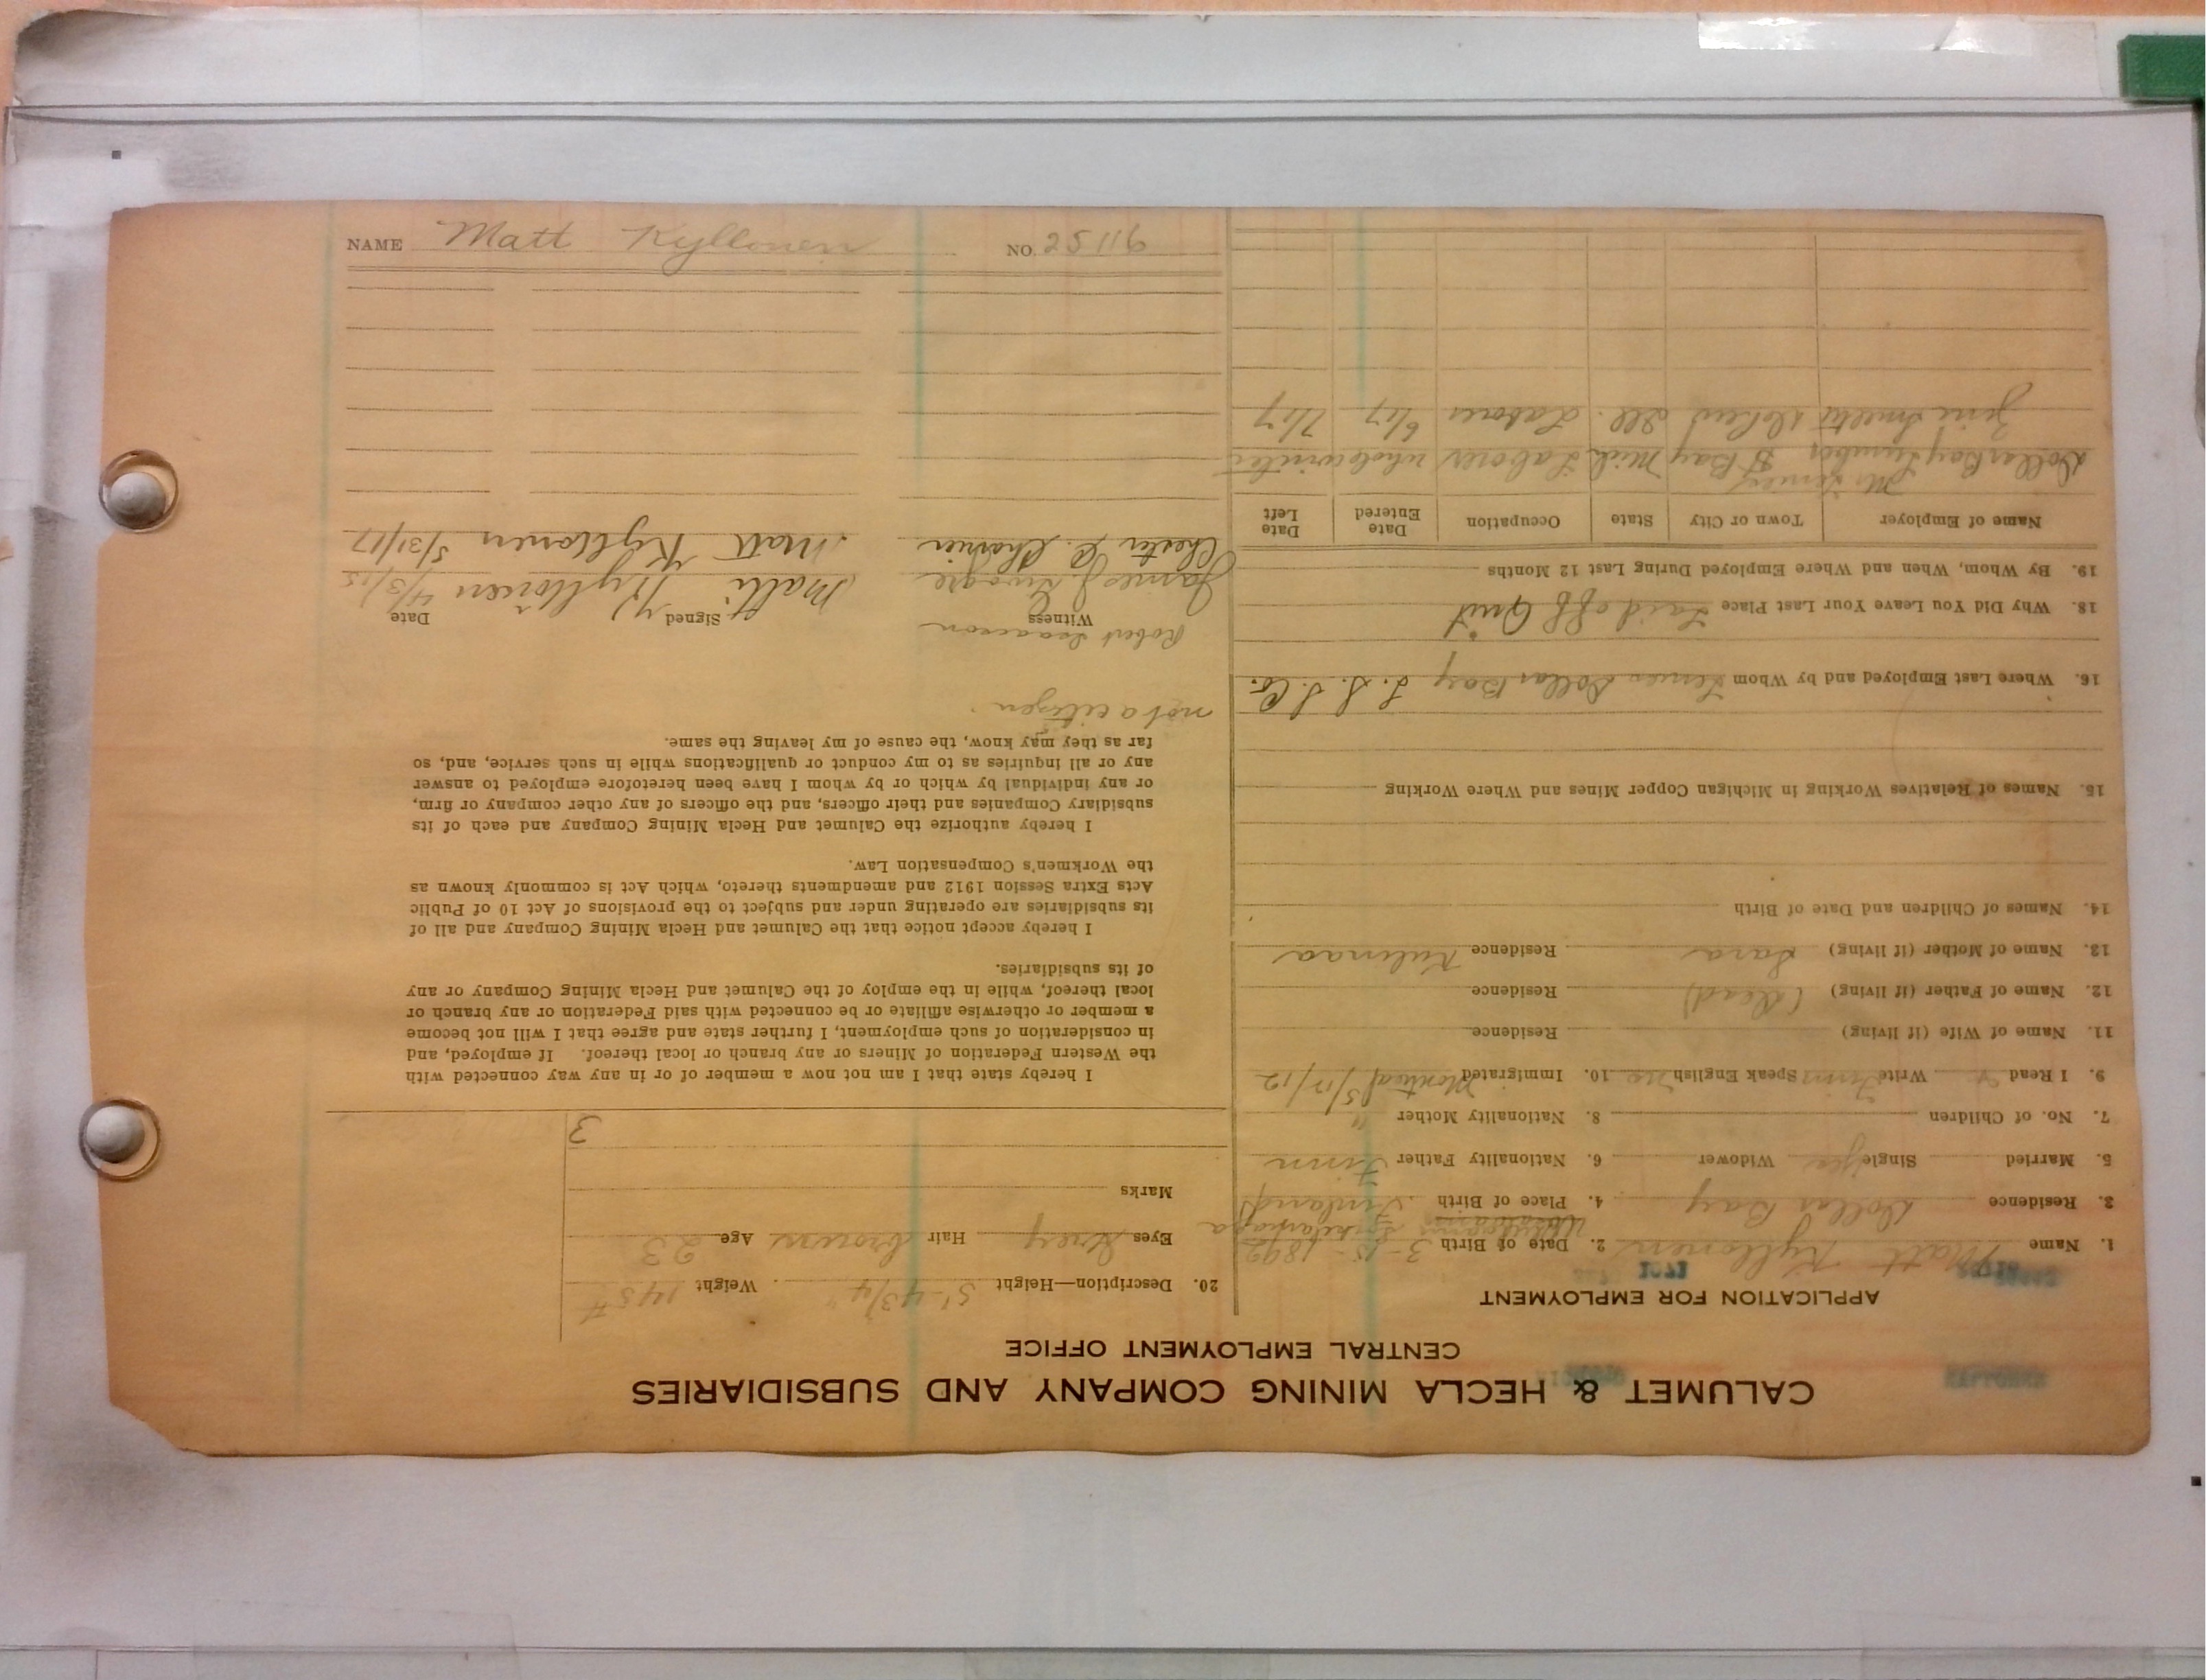 CALUMET & HECLA MINING COMPANY AND SUBSIDIARIES
CENTRAL EMPLOYMENT OFFICE
APPLICATION FOR EMPLOYMENT
1. Name Matt Kyllonen 2. Date of Birth 3-15-1892
3. Residence Dollar Bay 4. Place of Birth Finland
5. Married Single Yes Widower 6. Nationality Father Finn
7. No. of Children 8. Nationality Mother "
9. I Read Write Finn Speak English No 10. Immigrated Montreal 5/17/12
11. Name of Wife (if living) Residence
12. Name of Father (if living) (dead) Residence
13. Name of Mother (if living) Sara Residence
14. Names of Children and Date of Birth
15. Names of Relatives Working in Michigan Copper Mines and Where Working
16. Where Last Employed and by Whom Dollar Bay
18. Why Did You Leave Your Last Place Laid off Quit
19. By Whom, When and Where Employed During Last 12 Months
Name of Employer Town or City State Occupation Date Entered Date Left
Dollar Bay Lumber D Bay Mich Laborer whole winter
Ill. Laborer 6/17 7/17
20. Description—Height 5'-4 3/4" Weight 145#
Eyes Grey Hair brown Age 23
Marks
3
I hereby state that I am not now a member of or in any way connected with
the Western Federation of Miners or any branch or local thereof. If employed, and
in consideration of such employment, I further state and agree that I will not become
a member or otherwise affiliate or be connected with said Federation or any branch or
local thereof, while in the employ of the Calumet and Hecla Mining Company or any
of its subsidiaries.
I hereby accept notice that the Calumet and Hecla Mining Company and all of
its subsidiaries are operating under and subject to the provisions of Act 10 of Public
Acts Extra Session 1912 and amendments thereto, which Act is commonly known as
the Workmen's Compensation Law.
I hereby authorize the Calumet and Hecla Mining Company and each of its
subsidiary Companies and their officers, and the officers of any other company or firm,
or any individual by which or by whom I have been heretofore employed to answer
any or all inquiries as to my conduct or qualifications while in such service, and, so
far as they may know, the cause of my leaving the same.
not a citizen.
Robert Isaacson
Witness Signed Date
James J. Matti Kyllönen 4/3/15
Chester Matt Kyllonen 5/31/17
NAME Matt Kyllonen NO. 25116